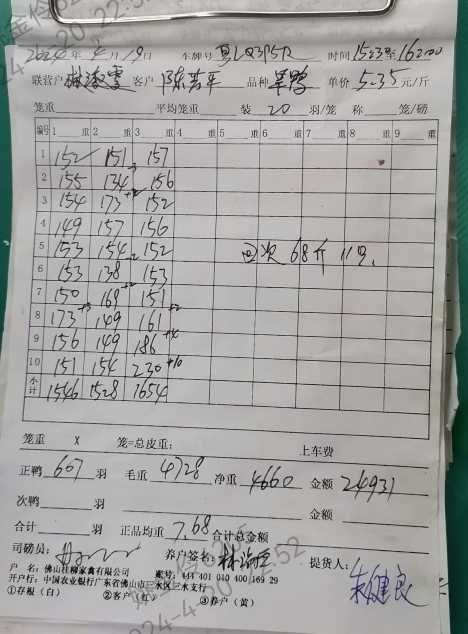 2024年4月19日 车牌号 粤LQ3P5R 时间 1523至162:00
联营户 林淑雲 客户 陈芸平 品种 单鸭 单价 5.35 元/斤
笼重 平均笼重 装 20 羽/笼 称 笼/磅
编号 1 重 2 重 3 重 4 重 5 重 6 重 7 重 8 重 9 重
1 152 151 157
2 155 134 156
3 154 173 152
4 149 157 156
5 153 154 152 回次68斤11只
6 153 138 153
7 150 169 151
8 173 149 161
9 156 149 186 +4
10 151 154 230 +10
小计 1546 1528 1654
笼重 X 笼=总皮重: 上车费
正鸭 607 羽 毛重 4728 净重 4660 金额 24931
次鸭 羽 金额
合计 羽 正品均重 7.68 合计总金额
司磅员: 养户签名: 提货人: 朱健良
户 名: 佛山桂柳家禽有限公司 账号: 444 401 010 400 169 29
开户行: 中国农业银行广东省佛山市三水区三水支行
①存根(白) ②客户(红) ③养户(黄)